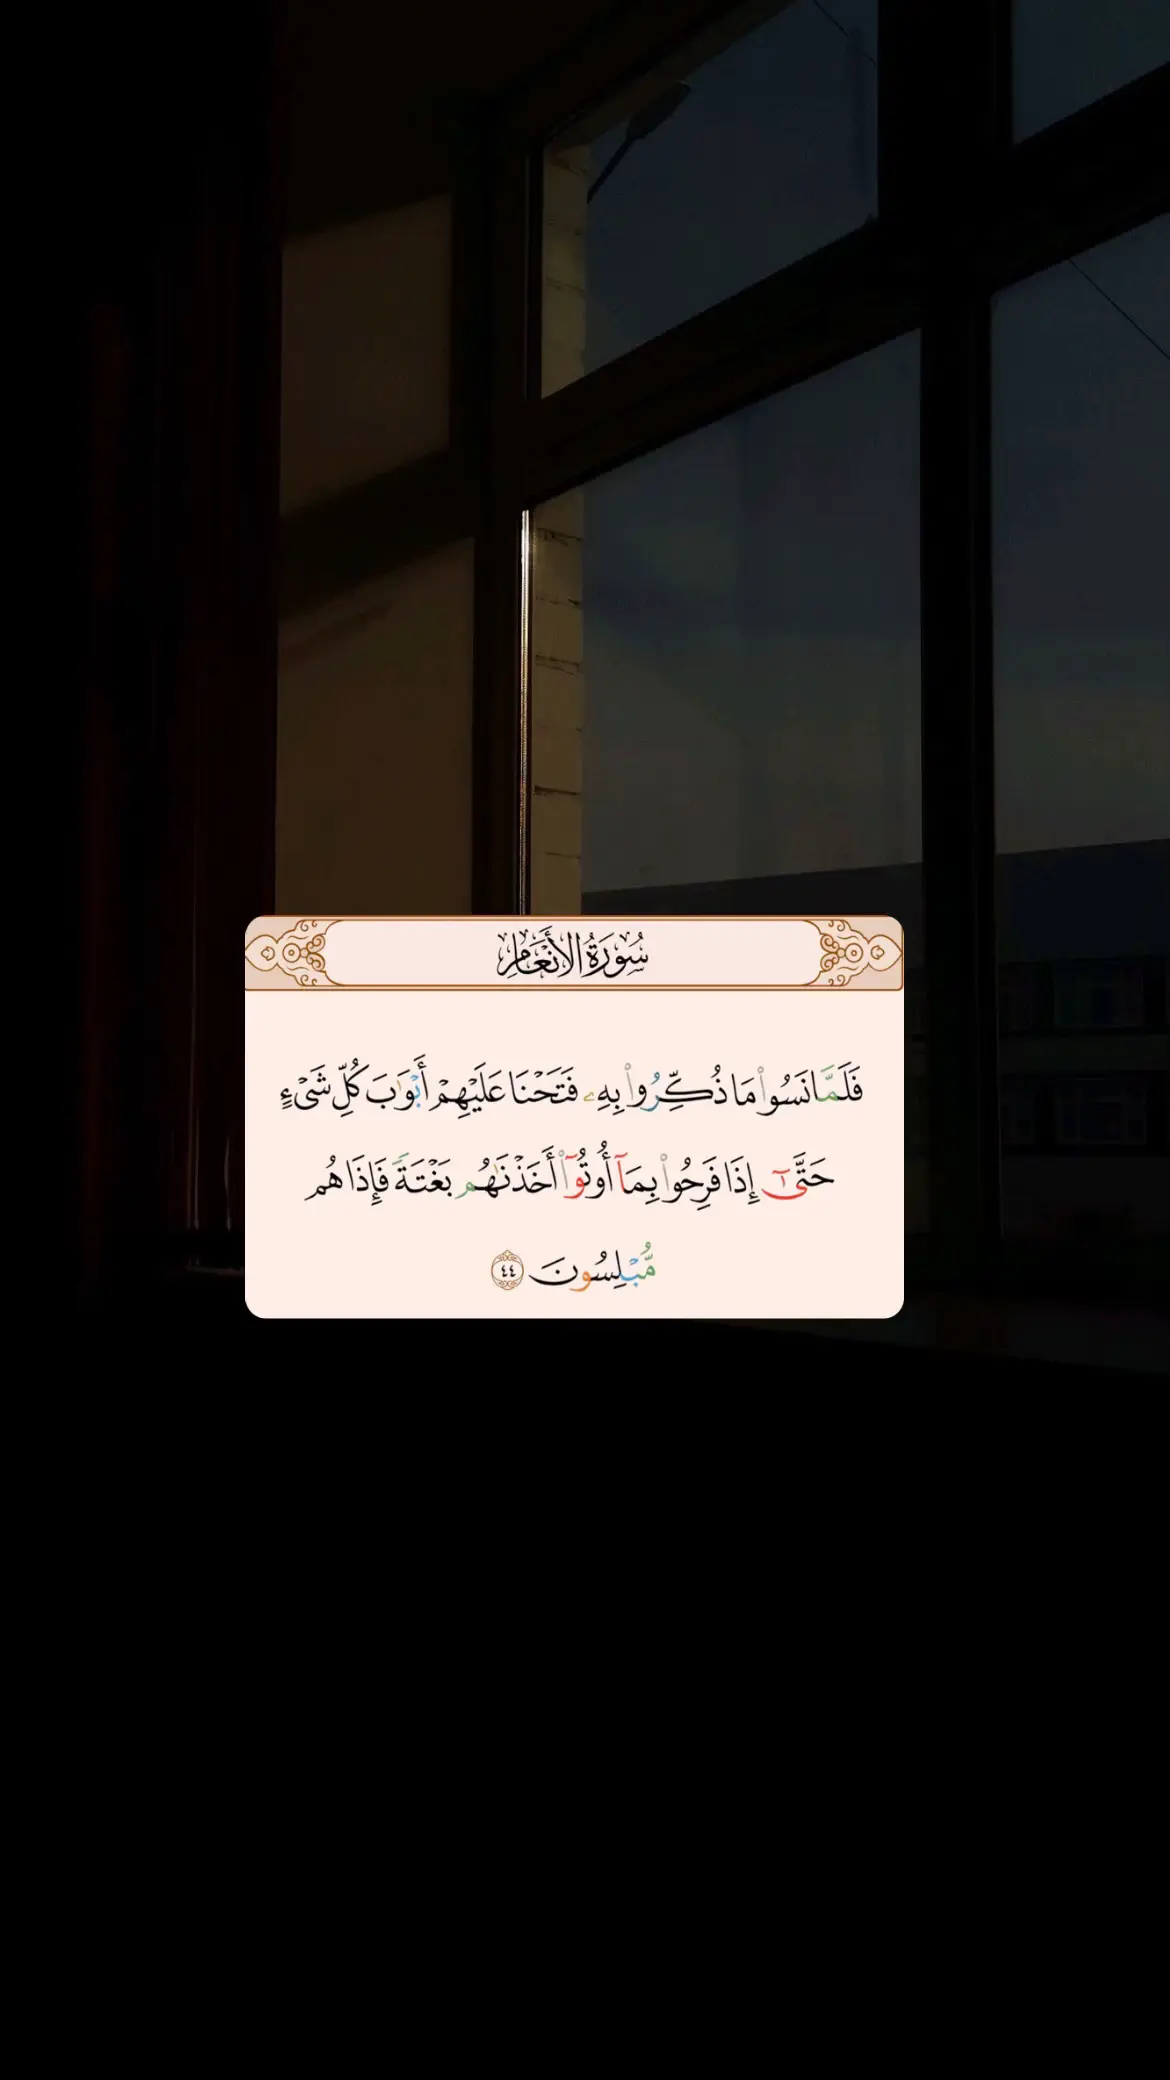 سُورَةُ الأَنْعَامِ
فَلَمَّا نَسُوا۟ مَا ذُكِّرُوا۟ بِهِۦ فَتَحْنَا عَلَيْهِمْ أَبْوَٰبَ كُلِّ شَىْءٍ
حَتَّىٰٓ إِذَا فَرِحُوا۟ بِمَآ أُوتُوٓا۟ أَخَذْنَـٰهُم بَغْتَةً فَإِذَا هُم
مُّبْلِسُونَ ٤٤